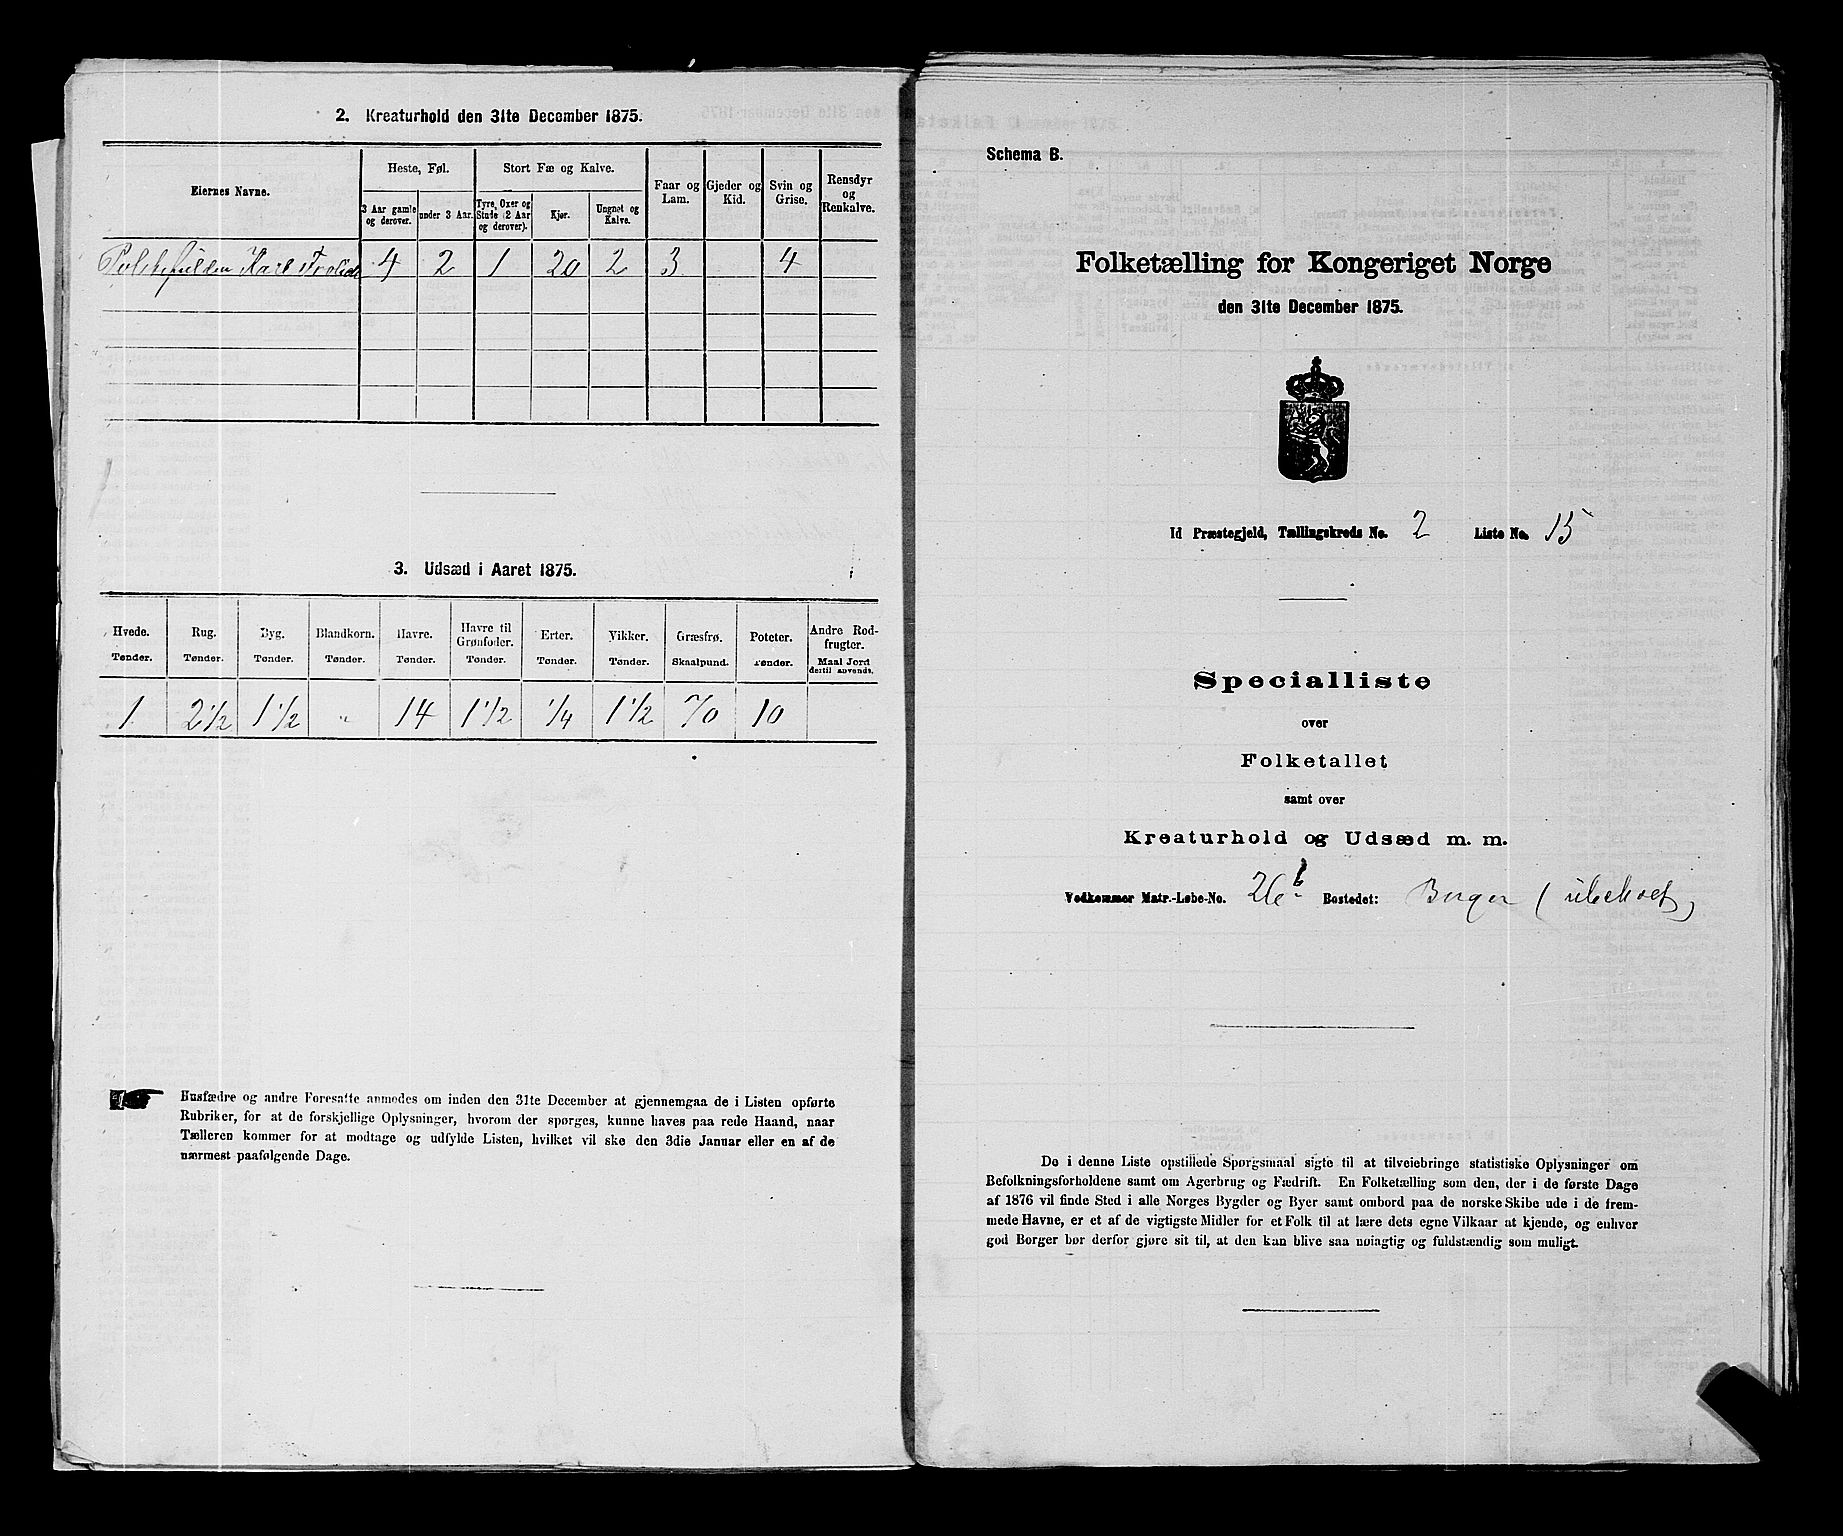 2. Kreaturhold den 31te December 1875.
Eiernes Navne.
Heste, Føl.
3 Aar gamle og derover.
under 3 Aar.
Stort Fæ og Kalve.
Tyre, Oxer og Stude (2 Aar og derover).
Kjør.
Ungnøt og Kalve.
Faar og Lam.
Gjeder og Kid.
Svin og Grise.
Rensdyr og Renkalve.
Karl 4 2 1 20 2 3 4
3. Udsæd i Aaret 1875.
Hvede. Rug. Byg. Blandkorn. Havre. Havre til Grønfoder. Erter. Vikker. Græsfrø. Poteter. Andre Rodfrugter.
Tønder. Tønder. Tønder. Tønder. Tønder. Tønder. Tønder. Tønder. Skaalpund. Tønder. Maal Jord dertil anvendt.
1 2 1/2 1 1/2 " 14 1 1/2 1/4 1 1/2 70 10
Husfædre og andre Foresatte anmodes om inden den 31te December at gjennemgaa de i Listen opførte
Rubriker, for at de forskjellige Oplysninger, hvorom der spørges, kunne haves paa rede Haand, naar
Tælleren kommer for at modtage og udfylde Listen, hvilket vil ske den 3die Januar eller en af de
nærmest paafølgende Dage.
Schema B.
Folketælling for Kongeriget Norge
den 31te December 1875.
Id Præstegjeld, Tællingskreds No. 2 Liste No. 15
Specialliste
over
Folketallet
samt over
Kreaturhold og Udsæd m. m.
Vedkommer Matr.-Løbe-No. 26 b Bostedet: Berger (ubeboet)
De i denne Liste opstillede Spørgsmaal sigte til at tilveiebringe statistiske Oplysninger om
Befolkningsforholdene samt om Agerbrug og Fædrift. En Folketælling som den, der i de første Dage
af 1876 vil finde Sted i alle Norges Bygder og Byer samt ombord paa de norske Skibe ude i de frem-
mede Havne, er et af de vigtigste Midler for et Folk til at lære dets egne Vilkaar at kjende, og enhver
god Borger bør derfor gjøre sit til, at den kan blive saa nøiagtig og fuldstændig som muligt.